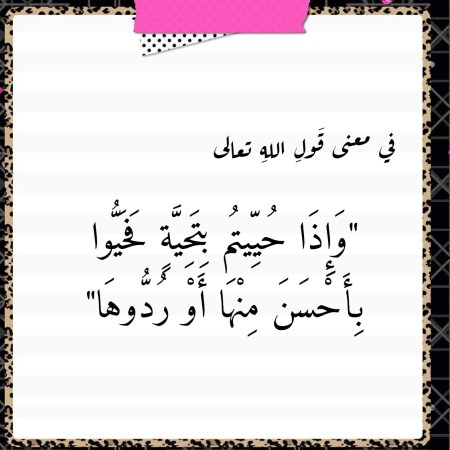 في معنى قَولِ اللهِ تعالى
"وَإِذَا حُيِّيتُم بِتَحِيَّةٍ فَحَيُّوا
بِأَحْسَنَ مِنْهَا أَوْ رُدُّوهَا"